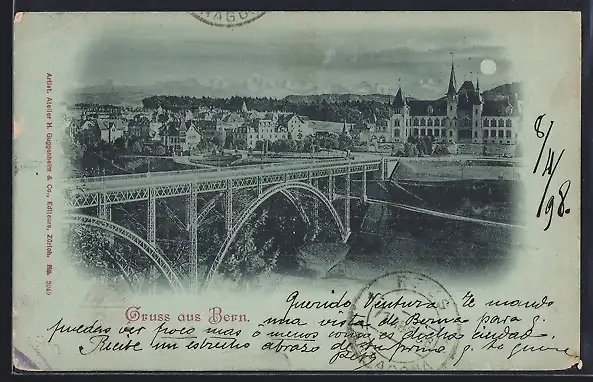 Artist. Atelier H. Guggenheim & Co., Editeurs, Zürich. No. 2040
8/4/98.
Gruss aus Bern.
Querido Ventura; te mando
una vista de Berna para q.
puedas ver poco mas ó menos como es dicha ciudad.
Recibe un estrecho abrazo de tu primo q. te quiere
Pepe